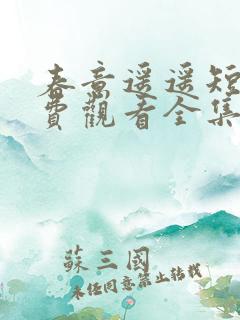 春意遥遥短
費觀看全集
蘇三國
未经同意禁止转载